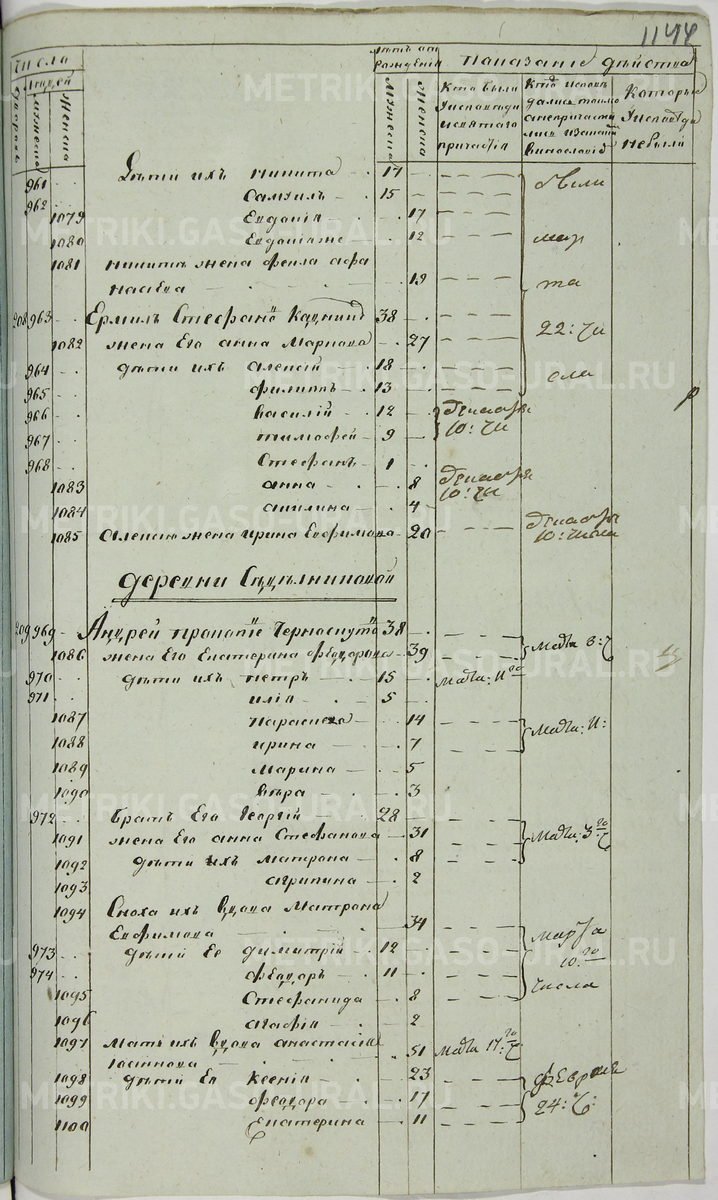 1144
Числа
Людей
Дворовъ
мужеска
Женска
лѣтъ отъ
рожденія
Мужеска
Женска
Показаніе дѣйства
Кто были
у исповѣди
и святаго
причастія
Кто исповѣ
дались токмо
а непричасти
лись
Которые
у исповѣди
небыли
961 Дѣти ихъ Никита 17
962 Самуилъ 15
были
1079 Евдокія 17
1080 Евдокія же 12
мар
1081 Никитѣ жена Фекла Афа
насьева 19
та
208 963 Ермилъ Стефановъ 38
22: чи
1082 жена Его Анна Маркова 27
964 дѣти ихъ Алексій 18
сла
965 Филиппъ 13
966 Василій 12
Декабря
967 Тимофей 9
10: чи
968 Стефанъ 1
1083 Анна 8
Декабря
10: чи
1084 Акилина 4
1085 Алексію жена Ирина Евфимова 20
Декабря
10: числа
деревни
209 969 Андрей 38
1086 жена Его Екатерина Феодорова 39
Мар̃та 3: ч
970 дѣти ихъ Петръ 15
Мар̃та: 11 го
971 Илія 5
1087 Параскева 14
1088 Ирина 7
Мар̃та: 11:
1089 Марина 5
1090 Вѣра 3
972 Братъ Его Георгій 28
1091 жена Его Анна Стефанова 31
Мар̃та: 3 го ч
1092 дѣти ихъ Матрона 8
1093 Агрипина 2
1094 Сноха ихъ вдова Матрона
Евфимова 34
марта
973 дѣти Ее Димитрій 12
10: го
974 Феодоръ 11
числа
1095 Стефанида 8
1096 Агафія 2
1097 Мать ихъ вдова Анастасія
51
Мар̃та 17: го ч
1098 дѣти Ея Ксенія 23
Февраля
1099 Феодора 17
24: ч:
1100 Екатерина 11
METRIKI.GASO-URAL.RU